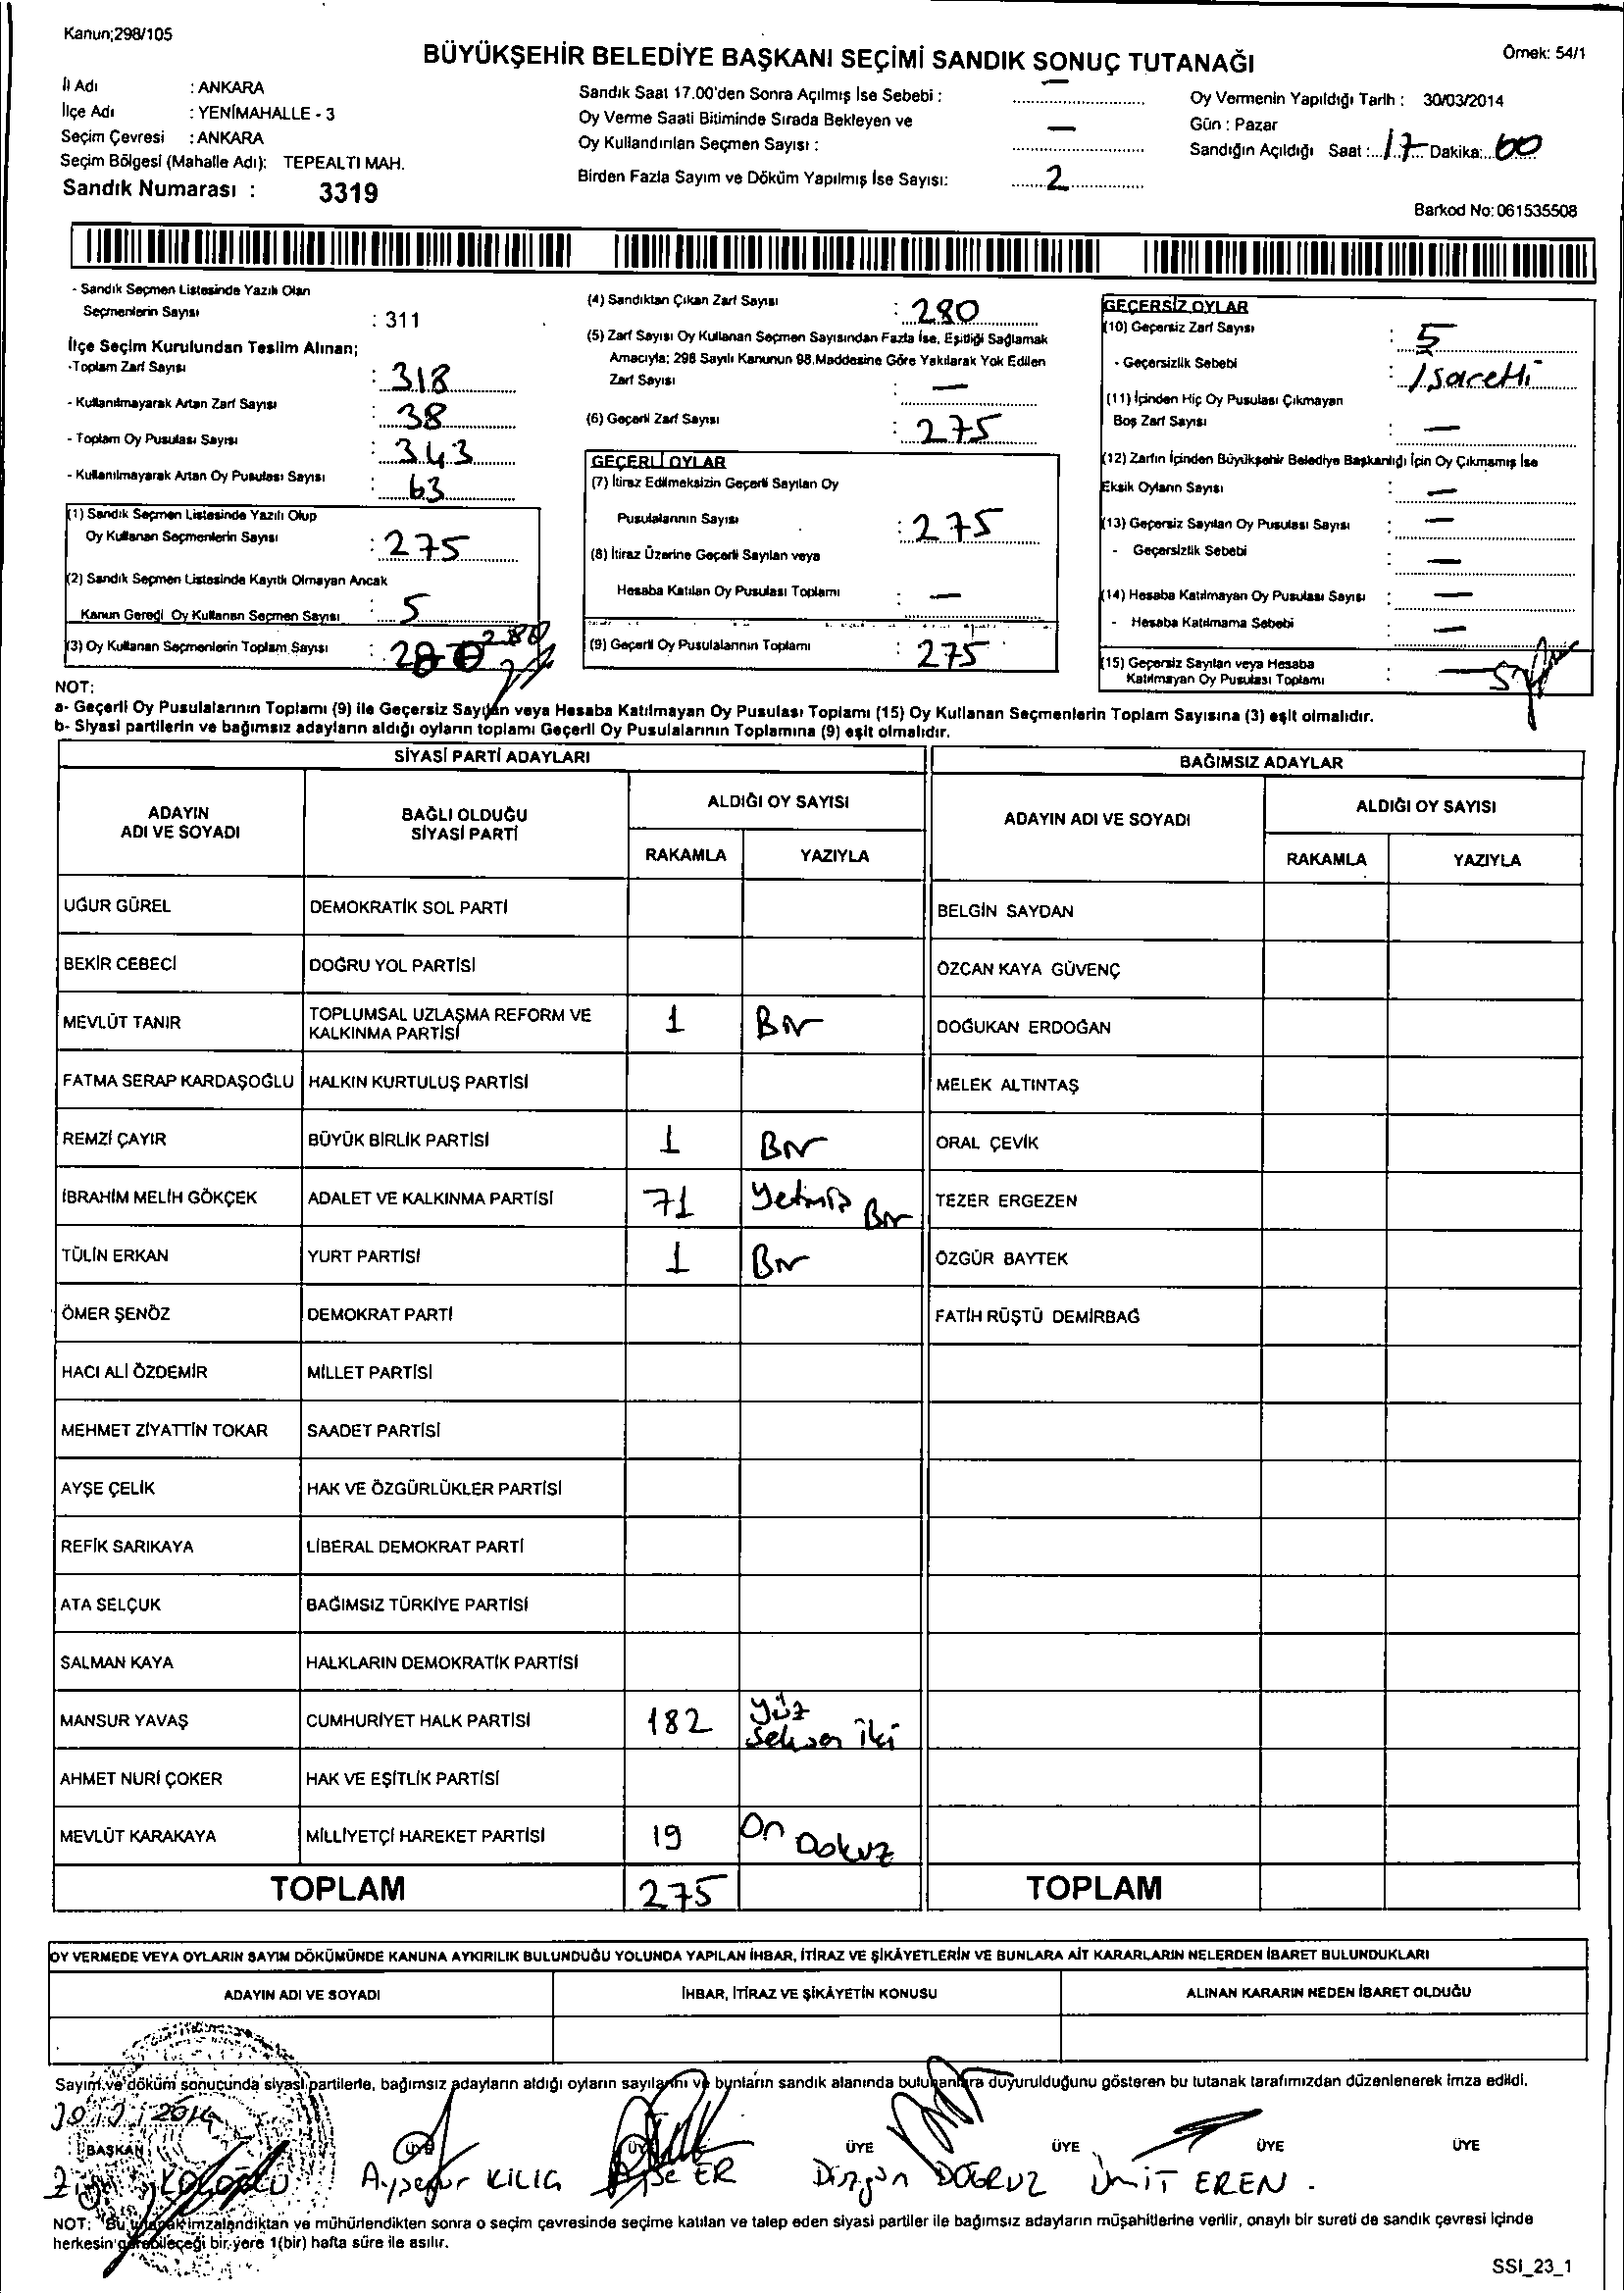 Kanun;298/105
BÜYÜKŞEHİR BELEDİYE BAŞKANI SEÇİMİ SANDIK SONUÇ TUTANAĞI
Örnek: 54/1
İl Adı : ANKARA
İlçe Adı : YENİMAHALLE - 3
Seçim Çevresi : ANKARA
Seçim Bölgesi (Mahalle Adı): TEPEALTI MAH.
Sandık Numarası : 3319
Sandık Saat 17.00'den Sonra Açılmış İse Sebebi : —
Oy Verme Saati Bitiminde Sırada Bekleyen ve
Oy Kullandırılan Seçmen Sayısı : —
Birden Fazla Sayım ve Döküm Yapılmış İse Sayısı: 2
Oy Vermenin Yapıldığı Tarih : 30/03/2014
Gün : Pazar
Sandığın Açıldığı Saat : 17 Dakika: 00
Barkod No: 061535508
- Sandık Seçmen Listesinde Yazılı Olan
Seçmenlerin Sayısı : 311
İlçe Seçim Kurulundan Teslim Alınan;
-Toplam Zarf Sayısı : 318
- Kullanılmayarak Artan Zarf Sayısı : 38
- Toplam Oy Pusulası Sayısı : 343
- Kullanılmayarak Artan Oy Pusulası Sayısı : 63
(1) Sandık Seçmen Listesinde Yazılı Olup
Oy Kullanan Seçmenlerin Sayısı : 275
(2) Sandık Seçmen Listesinde Kayıtlı Olmayan Ancak
Kanun Gereği Oy Kullanan Seçmen Sayısı : 5
(3) Oy Kullanan Seçmenlerin Toplam Sayısı : 280
(4) Sandıktan Çıkan Zarf Sayısı : 280
(5) Zarf Sayısı Oy Kullanan Seçmen Sayısından Fazla İse, Eşitliği Sağlamak
Amacıyla; 298 Sayılı Kanunun 98.Maddesine Göre Yakılarak Yok Edilen
Zarf Sayısı : —
(6) Geçerli Zarf Sayısı : 275
GEÇERLİ OYLAR
(7) İtiraz Edilmeksizin Geçerli Sayılan Oy
Pusulalarının Sayısı : 275
(8) İtiraz Üzerine Geçerli Sayılan veya
Hesaba Katılan Oy Pusulası Toplamı : —
(9) Geçerli Oy Pusulalarının Toplamı : 275
GEÇERSİZ OYLAR
(10) Geçersiz Zarf Sayısı : 5
- Geçersizlik Sebebi : İşaretli
(11) İçinden Hiç Oy Pusulası Çıkmayan
Boş Zarf Sayısı : —
(12) Zarfın İçinden Büyükşehir Belediye Başkanlığı İçin Oy Çıkmamış İse
Eksik Oyların Sayısı : —
(13) Geçersiz Sayılan Oy Pusulası Sayısı : —
- Geçersizlik Sebebi : —
(14) Hesaba Katılmayan Oy Pusulası Sayısı : —
- Hesaba Katılmama Sebebi : —
(15) Geçersiz Sayılan veya Hesaba
Katılmayan Oy Pusulası Toplamı : — 5
NOT:
a- Geçerli Oy Pusulalarının Toplamı (9) ile Geçersiz Sayılan veya Hesaba Katılmayan Oy Pusulası Toplamı (15) Oy Kullanan Seçmenlerin Toplam Sayısına (3) eşit olmalıdır.
b- Siyasi partilerin ve bağımsız adayların aldığı oyların toplamı Geçerli Oy Pusulalarının Toplamına (9) eşit olmalıdır.
SİYASİ PARTİ ADAYLARI BAĞIMSIZ ADAYLAR
ADAYIN ADI VE SOYADI BAĞLI OLDUĞU SİYASİ PARTİ ALDIĞI OY SAYISI ADAYIN ADI VE SOYADI ALDIĞI OY SAYISI
RAKAMLA YAZIYLA RAKAMLA YAZIYLA
UĞUR GÜREL DEMOKRATİK SOL PARTİ BELGİN SAYDAN
BEKİR CEBECİ DOĞRU YOL PARTİSİ ÖZCAN KAYA GÜVENÇ
MEVLÜT TANIR TOPLUMSAL UZLAŞMA REFORM VE KALKINMA PARTİSİ 1 Bir DOĞUKAN ERDOĞAN
FATMA SERAP KARDAŞOĞLU HALKIN KURTULUŞ PARTİSİ MELEK ALTINTAŞ
REMZİ ÇAYIR BÜYÜK BİRLİK PARTİSİ 1 Bir ORAL ÇEVİK
İBRAHİM MELİH GÖKÇEK ADALET VE KALKINMA PARTİSİ 71 Yetmiş Bir TEZER ERGEZEN
TÜLİN ERKAN YURT PARTİSİ 1 Bir ÖZGÜR BAYTEK
ÖMER ŞENÖZ DEMOKRAT PARTİ FATİH RÜŞTÜ DEMİRBAĞ
HACI ALİ ÖZDEMİR MİLLET PARTİSİ
MEHMET ZİYATTİN TOKAR SAADET PARTİSİ
AYŞE ÇELİK HAK VE ÖZGÜRLÜKLER PARTİSİ
REFİK SARIKAYA LİBERAL DEMOKRAT PARTİ
ATA SELÇUK BAĞIMSIZ TÜRKİYE PARTİSİ
SALMAN KAYA HALKLARIN DEMOKRATİK PARTİSİ
MANSUR YAVAŞ CUMHURİYET HALK PARTİSİ 182 Yüz Seksen İki
AHMET NURİ ÇOKER HAK VE EŞİTLİK PARTİSİ
MEVLÜT KARAKAYA MİLLİYETÇİ HAREKET PARTİSİ 19 On Dokuz
TOPLAM 275 TOPLAM
OY VERMEDE VEYA OYLARIN SAYIM DÖKÜMÜNDE KANUNA AYKIRILIK BULUNDUĞU YOLUNDA YAPILAN İHBAR, İTİRAZ VE ŞİKÂYETLERİN VE BUNLARA AİT KARARLARIN NELERDEN İBARET BULUNDUKLARI
ADAYIN ADI VE SOYADI İHBAR, İTİRAZ VE ŞİKÂYETİN KONUSU ALINAN KARARIN NEDEN İBARET OLDUĞU
Sayım ve döküm sonucunda siyasi partilerle, bağımsız adayların aldığı oyların sayılarını ve bunların sandık alanında bulunanlara duyurulduğunu gösteren bu tutanak tarafımızdan düzenlenerek imza edildi.
BAŞKAN ÜYE ÜYE ÜYE ÜYE ÜYE ÜYE
Ayşegür KILIG Ayşe ER Düzgün DOĞRUZ ÜMİT EREN .
NOT: Bu tutanak imzalandıktan ve mühürlendikten sonra o seçim çevresinde seçime katılan ve talep eden siyasi partiler ile bağımsız adayların müşahitlerine verilir, onaylı bir sureti de sandık çevresi içinde
herkesin görebileceği bir yere 1(bir) hafta süre ile asılır.
SSI_23_1